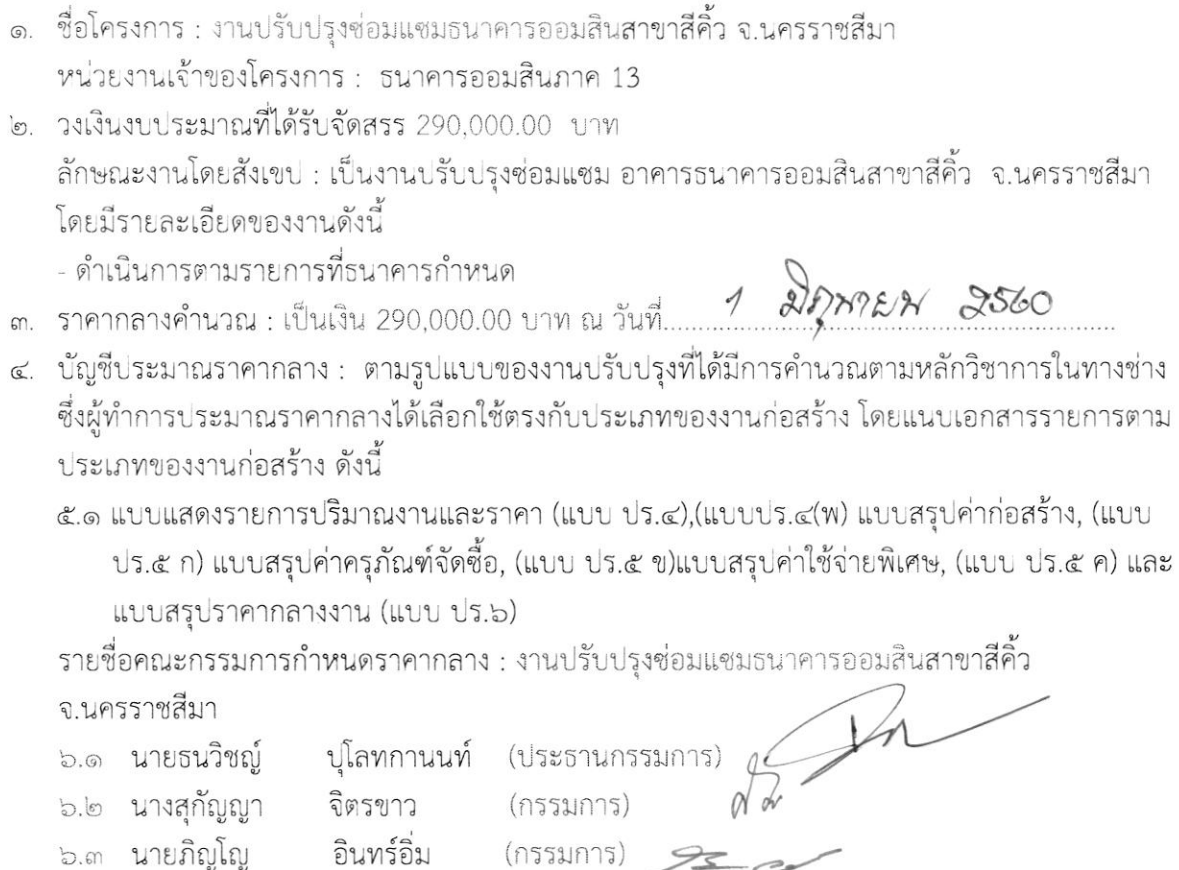 ๑. ชื่อโครงการ : งานปรับปรุงซ่อมแซมธนาคารออมสินสาขาสีคิ้ว จ.นครราชสีมา
หน่วยงานเจ้าของโครงการ : ธนาคารออมสินภาค 13
๒. วงเงินงบประมาณที่ได้รับจัดสรร 290,000.00 บาท
ลักษณะงานโดยสังเขป : เป็นงานปรับปรุงซ่อมแซม อาคารธนาคารออมสินสาขาสีคิ้ว จ.นครราชสีมา
โดยมีรายละเอียดของงานดังนี้
- ดำเนินการตามรายการที่ธนาคารกำหนด
๓. ราคากลางคำนวณ : เป็นเงิน 290,000.00 บาท ณ วันที่ 1 มิถุนายน 2560
๔. บัญชีประมาณราคากลาง : ตามรูปแบบของงานปรับปรุงที่ได้มีการคำนวณตามหลักวิชาการในทางช่าง
ซึ่งผู้ทำการประมาณราคากลางได้เลือกใช้ตรงกับประเภทของงานก่อสร้าง โดยแนบเอกสารรายการตาม
ประเภทของงานก่อสร้าง ดังนี้
๕.๑ แบบแสดงรายการปริมาณงานและราคา (แบบ ปร.๔),(แบบปร.๔(พ) แบบสรุปค่าก่อสร้าง, (แบบ
ปร.๕ ก) แบบสรุปค่าครุภัณฑ์จัดซื้อ, (แบบ ปร.๕ ข)แบบสรุปค่าใช้จ่ายพิเศษ, (แบบ ปร.๕ ค) และ
แบบสรุปราคากลางงาน (แบบ ปร.๖)
รายชื่อคณะกรรมการกำหนดราคากลาง : งานปรับปรุงซ่อมแซมธนาคารออมสินสาขาสีคิ้ว
จ.นครราชสีมา
๖.๑ นายธนวิชญ์ ปุโลทกานนท์ (ประธานกรรมการ)
๖.๒ นางสุกัญญา จิตรขาว (กรรมการ)
๖.๓ นายภิญโญ อินทร์อิ่ม (กรรมการ)